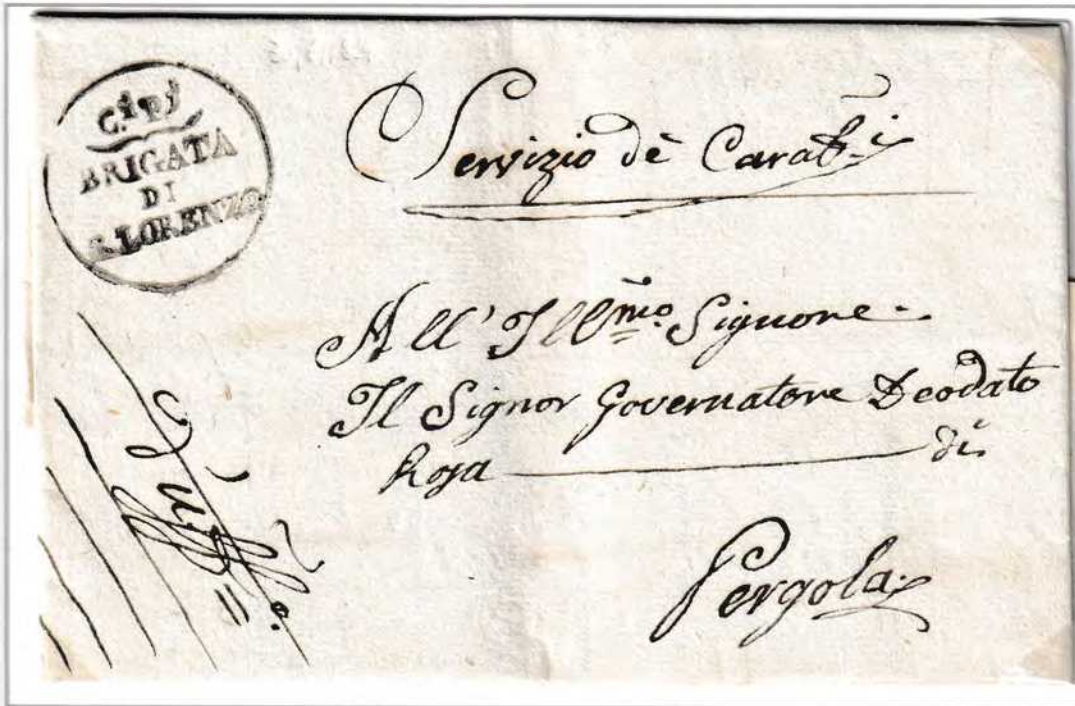 C.i P.i
BRIGATA
DI
S. LORENZO
Servizio dè Carab.i
All' Ill.mo Signore
Il Signor Governatore Deodato
di
Pergola
D'uff.o